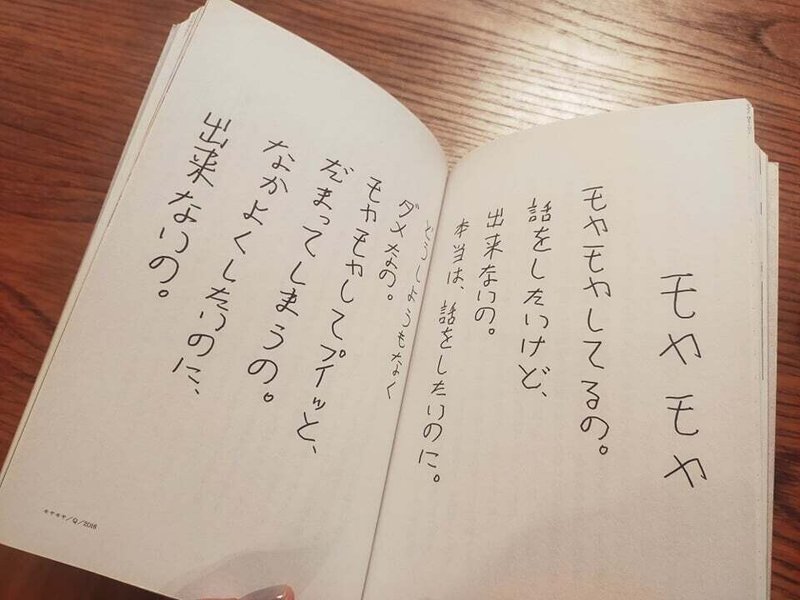 モヤモヤ
モヤモヤしてるの。
話をしたいけど、
出来ないの。
本当は、話をしたいのに。
どうしようもなく
ダメなの。
モヤモヤしてプイッと、
だまってしまうの。
なかよくしたいのに、
出来ないの。
モヤモヤ/Q/2016